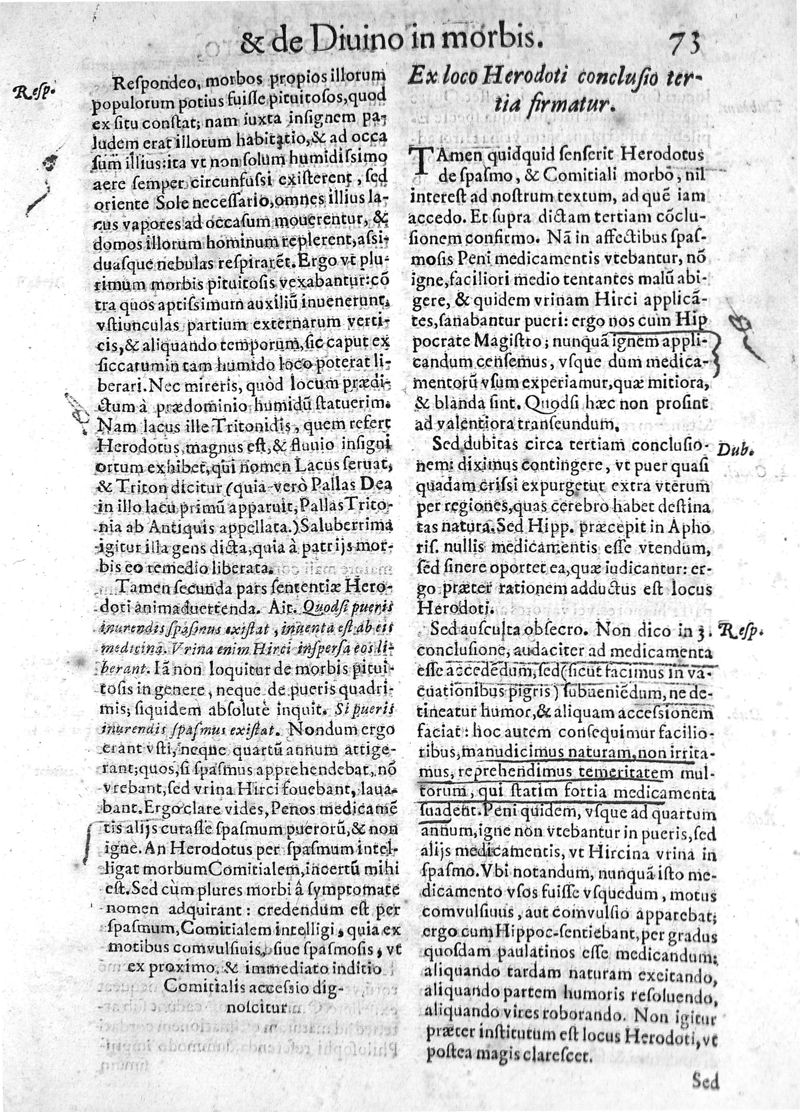 & de Diuino in morbis. 73
Resp.
Respondeo, morbos propios illorum
populorum potius fuisse pituitosos, quod
ex situ constat; nam iuxta insignem pa-
ludem erat illorum habitatio, & ad occa
sum illius: ita vt non solum humidissimo
aere semper circunfussi existerent, sed
oriente Sole necessario, omnes illius la-
cus vapores ad occasum mouerentur, &
domos illorum hominum replerent, assi-
duasque nebulas respirarēt. Ergo vt plu-
rimum morbis pituitosis vexabantur: cō
tra quos aptissimum auxiliū inuenerunt,
vstiunculas partium externarum verti-
cis, & aliquando temporum, sic caput ex
siccatum in tam humido loco poterat li-
berari. Nec mireris, quòd locum prædi-
ctum à prædominio humidū statuerim.
Nam lacus ille Tritonidis, quem refert
Herodotus, magnus est, & fluuio insigni
ortum exhibet, qui nomen Lacus seruat,
& Triton dicitur (quia verò Pallas Dea
in illo lacu primū apparuit, Pallas Trito-
nia ab Antiquis appellata.) Saluberrima
igitur illa gens dicta, quia à patrijs mor-
bis eo remedio liberata.
Tamen secunda pars sententiæ Hero-
doti animaduertenda. Ait. Quodsi pueris
inurendis spasmus existat, inuenta est ab eis
medicina. Vrina enim Hirci inspersa eos li-
berant. Iā non loquitur de morbis pitui-
tosis in genere, neque de pueris quadri-
mis; siquidem absolutè inquit. Si pueris
inurendis spasmus existat. Nondum ergo
erant vsti, neque quartū annum attige-
rant; quos, si spasmus apprehendebat, nō
vrebant, sed vrina Hirci fouebant, laua-
bant. Ergo clare vides, Penos medicamē
tis alijs curasse spasmum puerorū, & non
igne. An Herodotus per spasmum intel-
ligat morbum Comitialem, incertū mihi
est. Sed cùm plures morbi â symptomate
nomen adquirant: credendum est per
spasmum, Comitialem intelligi, quia ex
motibus comvulsiuis, siue spasmosis, vt
ex proximo, & immediato inditio
Comitialis accessio dig-
noscitur.
Ex loco Herodoti conclusio ter-
tia firmatur.
TAmen quidquid senserit Herodotus
de spasmo, & Comitiali morbo, nil
interest ad nostrum textum, ad quē iam
accedo. Et supra dictam tertiam cōclu-
sionem confirmo. Nā in affectibus spas-
mosis Peni medicamentis vtebantur, nō
igne, faciliori medio tentantes malū abi-
gere, & quidem vrinam Hirci applicā-
tes, sanabantur pueri: ergo nos cum Hip
pocrate Magistro; nunquā ignem appli-
candum censemus, vsque dum medica-
mentorū vsum experiamur, quæ mitiora,
& blanda sint. Quodsi hæc non prosint
ad valentiora transeundum.
Sed dubitas circa tertiam conclusio- Dub.
nem: diximus contingere, vt puer quasi
quadam crisi expurgetur extra vterum
per regiones, quas cerebro habet destina
tas natura. Sed Hipp. præcepit in Apho
ris. nullis medicamentis esse vtendum,
sed sinere oportet ea, quæ iudicantur: er-
go præter rationem adductus est locus
Herodoti.
Sed ausculta obsecro. Non dico in 3. Resp.
conclusione, audaciter ad medicamenta
esse accedēdum, sed (sicut facimus in va-
cuationibus pigris) subueniēdum, ne de-
tineatur humor, & aliquam accessionem
faciat: hoc autem consequimur facilio-
ribus, manudicimus naturam, non irrita-
mus, reprehendimus temeritatem mul-
torum, qui statim fortia medicamenta
suadent. Peni quidem, vsque ad quartum
annum, igne non vtebantur in pueris, sed
alijs medicamentis, vt Hircina vrina in
spasmo. Vbi notandum, nunquā isto me-
dicamento vsos fuisse vsquedum, motus
comvulsiuus, aut comvulsio apparebat;
ergo cum Hippoc. sentiebant, per gradus
quosdam paulatinos esse medicandum;
aliquando tardam naturam excitando,
aliquando partem humoris resoluendo,
aliquando vires roborando. Non igitur
præter institutum est locus Herodoti, vt
postea magis clarescet.
Sed